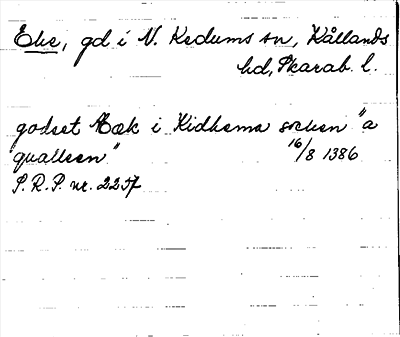 Eke, gd i N. Kedums sn, Kållands
hd, Skarab. l.
godset Æk i Kidhema soken "a
qwallsen"
16/8 1386
S.R.P. nr. 2257